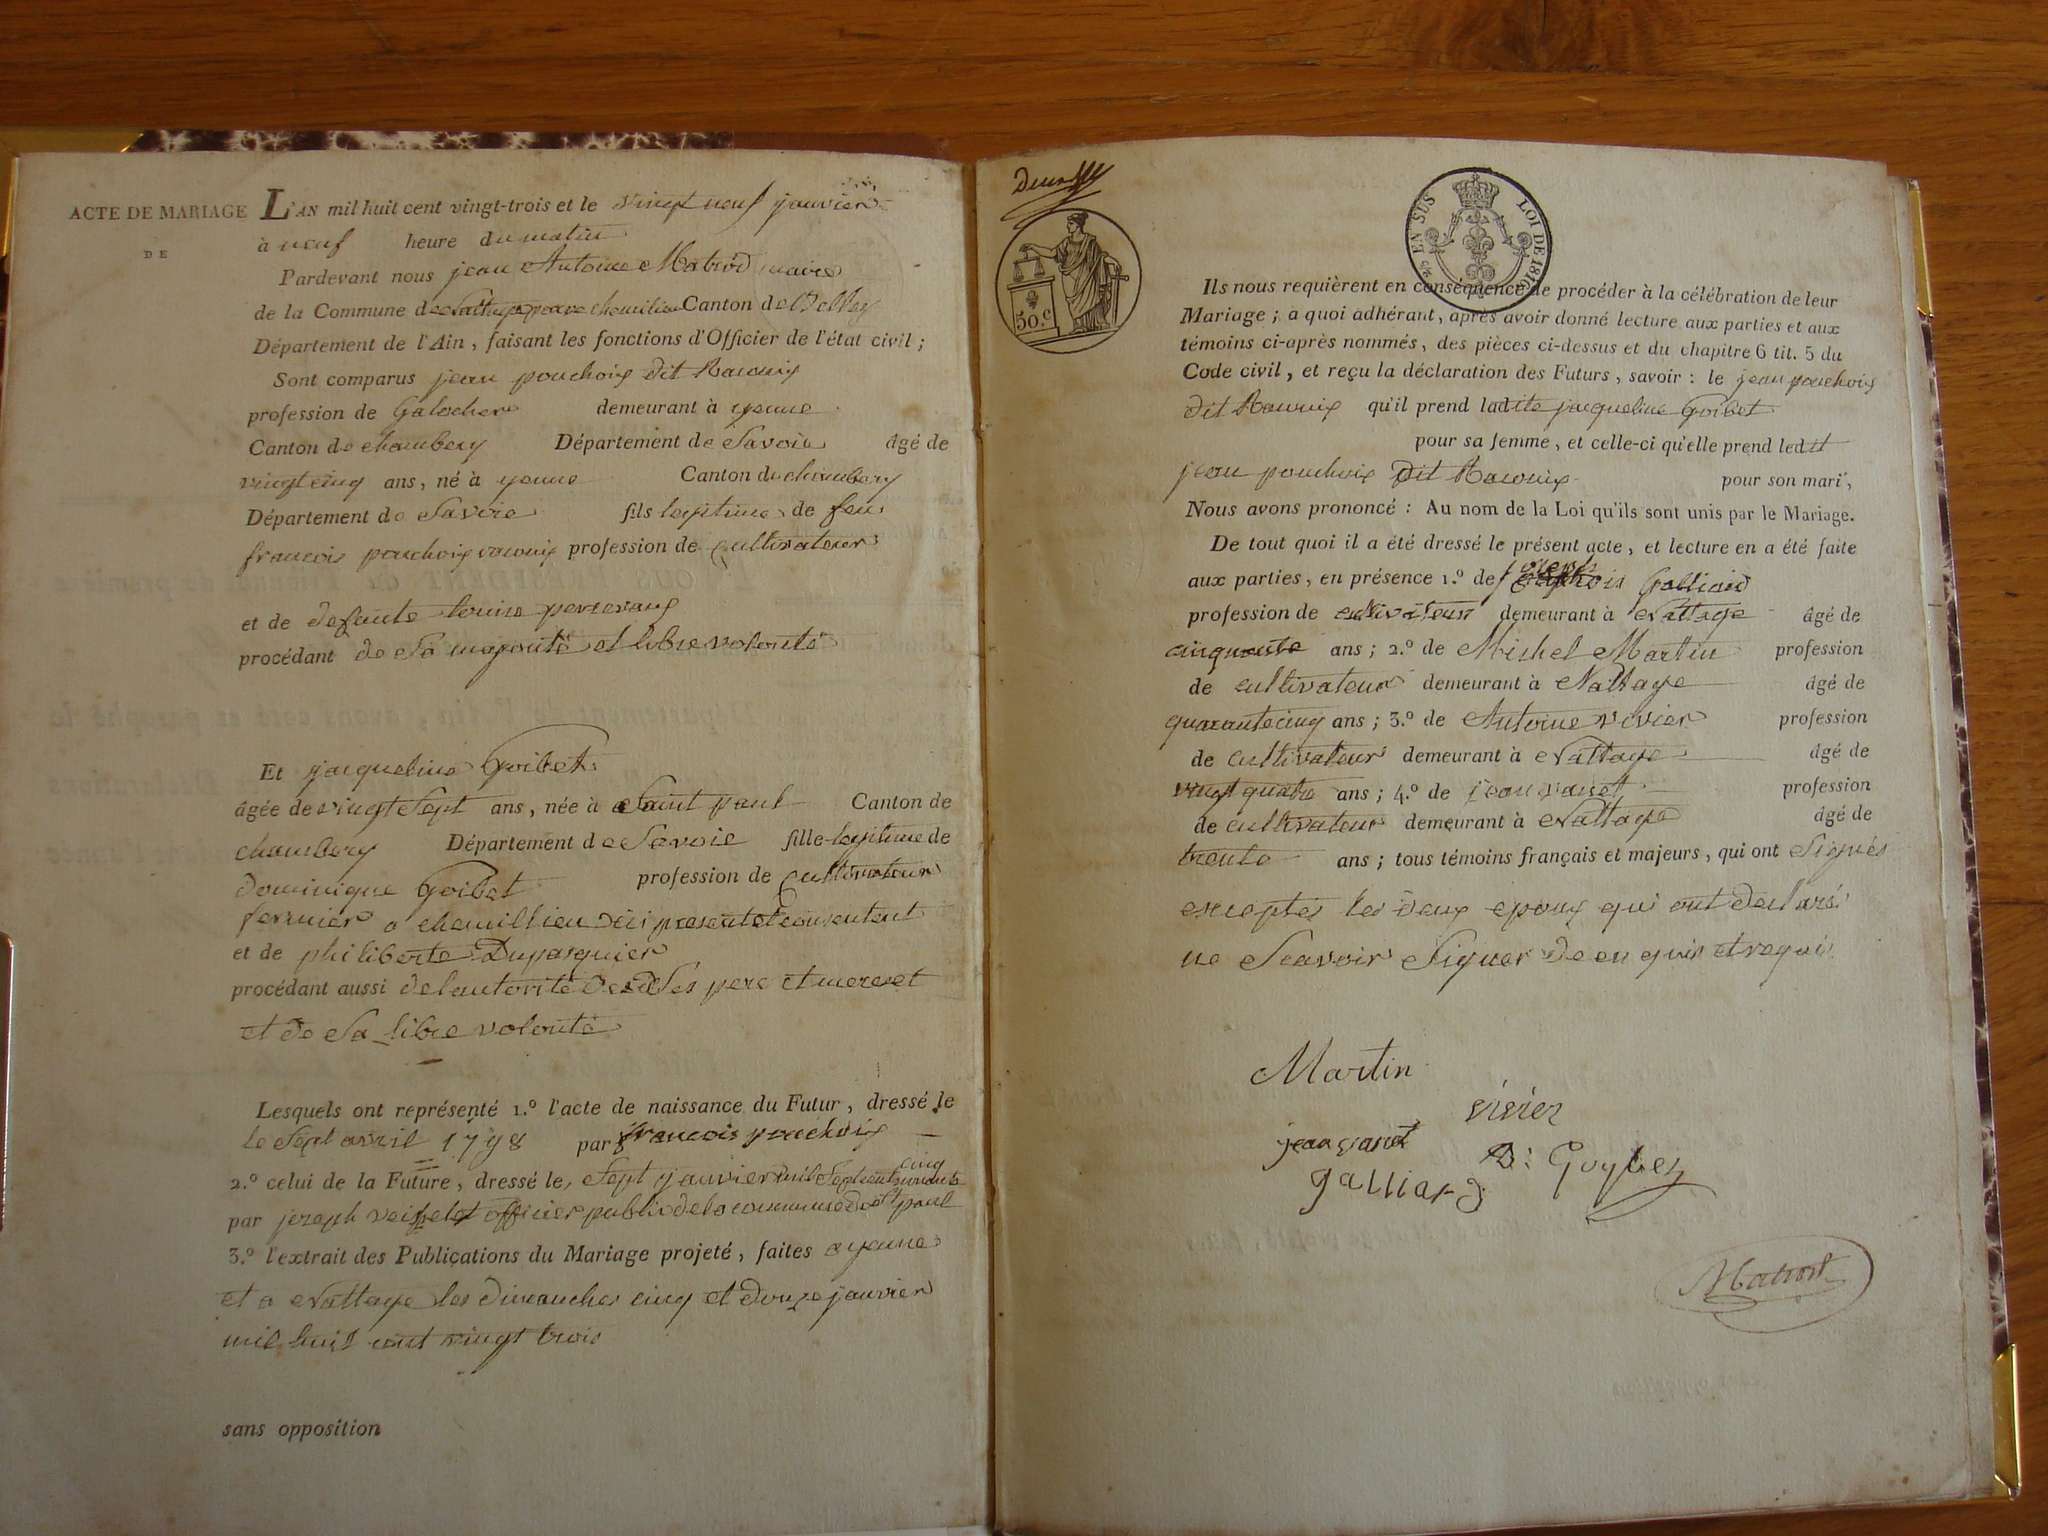 ACTE DE MARIAGE
DE
L'AN mil huit cent vingt-trois et le vingt neuf janvier
à neuf heure du matin
Pardevant nous jean Antoine Matrod maire
de la Commune de Canton de Belley
Département de l'Ain, faisant les fonctions d'Officier de l'état civil;
Sont comparus jean pouchoix dit Racouix
profession de Galocher demeurant à yenne
Canton de chambery Département de Savoie âgé de
vingt cinq ans, né à yenne Canton de chambery
Département de Savoie fils legitime de feu
francois pouchoix profession de Cultivateur
et de defunte louise
procédant de Sa majorité et libre volonté
Et jacqueline Goibet
âgée de vingt Sept ans, née à Saint paul Canton de
chambery Département de Savoie fille legitime de
dominique Goibet profession de Cultivateur
fermier a chemillieu ici present et consentent
et de philiberte Dupasquier
procédant aussi de lautorité de Ses pere et mere et
et de Sa libre volonté
Lesquels ont représenté 1.º l'acte de naissance du Futur, dressé le
le Sept avril 1798 par francois pouchoix
2.º celui de la Future, dressé le, Sept janvier mil Sept cent cinq
par joseph officier public de la commune de St paul
3.º l'extrait des Publications du Mariage projeté, faites a yenne
et a Nattage les dimanches cinq et douze janvier
mil huit cent vingt trois
sans opposition
50.c
EN SUS LOI DE 181
Ils nous requièrent en conséquence de procéder à la célébration de leur
Mariage; a quoi adhérant, après avoir donné lecture aux parties et aux
témoins ci-après nommés, des pièces ci-dessus et du chapitre 6 tit. 5 du
Code civil, et reçu la déclaration des Futurs, savoir: le jean pouchoix
dit Racouix qu'il prend ladite jacqueline Goibet
pour sa femme, et celle-ci qu'elle prend ledit
jean pouchoix dit Racouix pour son mari,
Nous avons prononcé: Au nom de la Loi qu'ils sont unis par le Mariage.
De tout quoi il a été dressé le présent acte, et lecture en a été faite
aux parties, en présence 1.º de Galliard
profession de cultivateur demeurant à Nattage âgé de
cinquante ans; 2.º de Michel Martin profession
de cultivateur demeurant à Nattage âgé de
quarante cinq ans; 3.º de Antoine vivier profession
de cultivateur demeurant à Nattage âgé de
vingt quatre ans; 4.º de jean profession
de cultivateur demeurant à Nattage âgé de
trente ans; tous témoins français et majeurs, qui ont Signés
exceptés les deux epoux qui ont declaré
ne Scavoir Signer de en quis et requis
Martin
vivier
jean
D: Goybet
galliard
Matrod